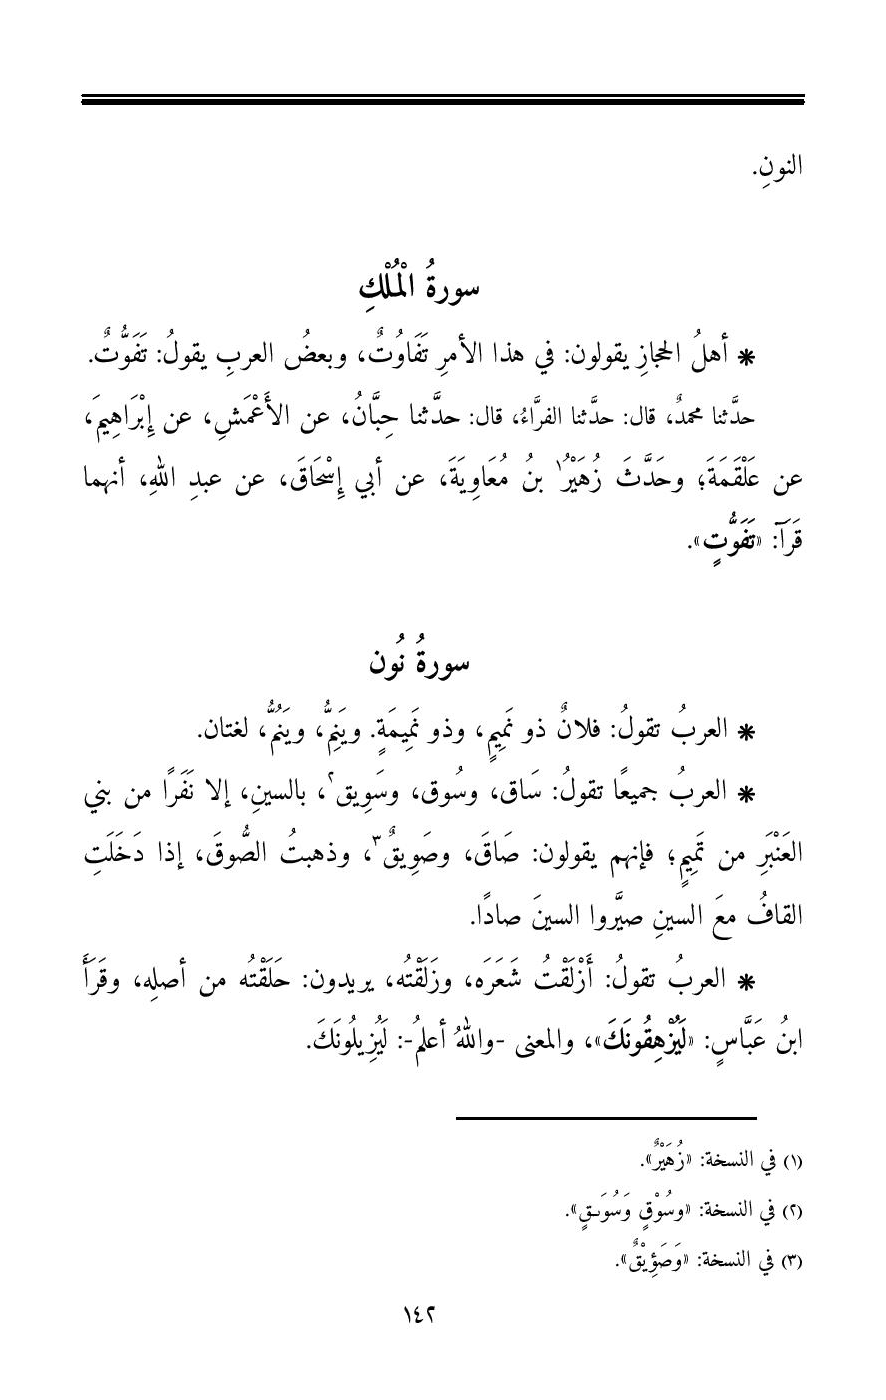 النونِ.
سورةُ الْمُلْكِ
* أهلُ الحجازِ يقولون: في هذا الأمرِ تَفَاوُتٌ، وبعضُ العربِ يقولُ: تَفَوُّتٌ.
حدَّثنا محمدٌ، قال: حدَّثنا الفرَّاءُ، قال: حدَّثنا حِبَّانُ، عن الأَعْمَشِ، عن إِبْرَاهِيمَ،
عن عَلْقَمَةَ؛ وحَدَّثَ زُهَيْرُ١ بنُ مُعَاوِيَةَ، عن أبي إِسْحَاقَ، عن عبدِ اللهِ، أنهما
قَرَآ: «تَفَوُّتٍ».
سورةُ نُون
* العربُ تقولُ: فلانٌ ذو نَمِيمٍ، وذو نَمِيمَةٍ. ويَنِمُّ، ويَنُمُّ، لغتان.
* العربُ جميعًا تقولُ: سَاق، وسُوق، وسَوِيق٢، بالسينِ، إلا نَفَرًا من بني
العَنْبَرِ من تَمِيمٍ؛ فإنهم يقولون: صَاقَ، وصَوِيقٌ٣، وذهبتُ الصُّوقَ، إذا دَخَلَتِ
القافُ معَ السينِ صيَّروا السينَ صادًا.
* العربُ تقولُ: أَزْلَقْتُ شَعَرَه، وزَلَقْتُه، يريدون: حَلَقْتُه من أصلِه، وقَرَأَ
ابنُ عَبَّاسٍ: «لَيُزْهِقُونَكَ»، والمعنى -واللهُ أعلمُ-: لَيُزِيلُونَكَ.
(١) في النسخة: «زُهَيْرٌ».
(٢) في النسخة: «وسُوْقٍ وَسُوَىقٍ».
(٣) في النسخة: «وَصَؤِيْقٌ».
١٤٢